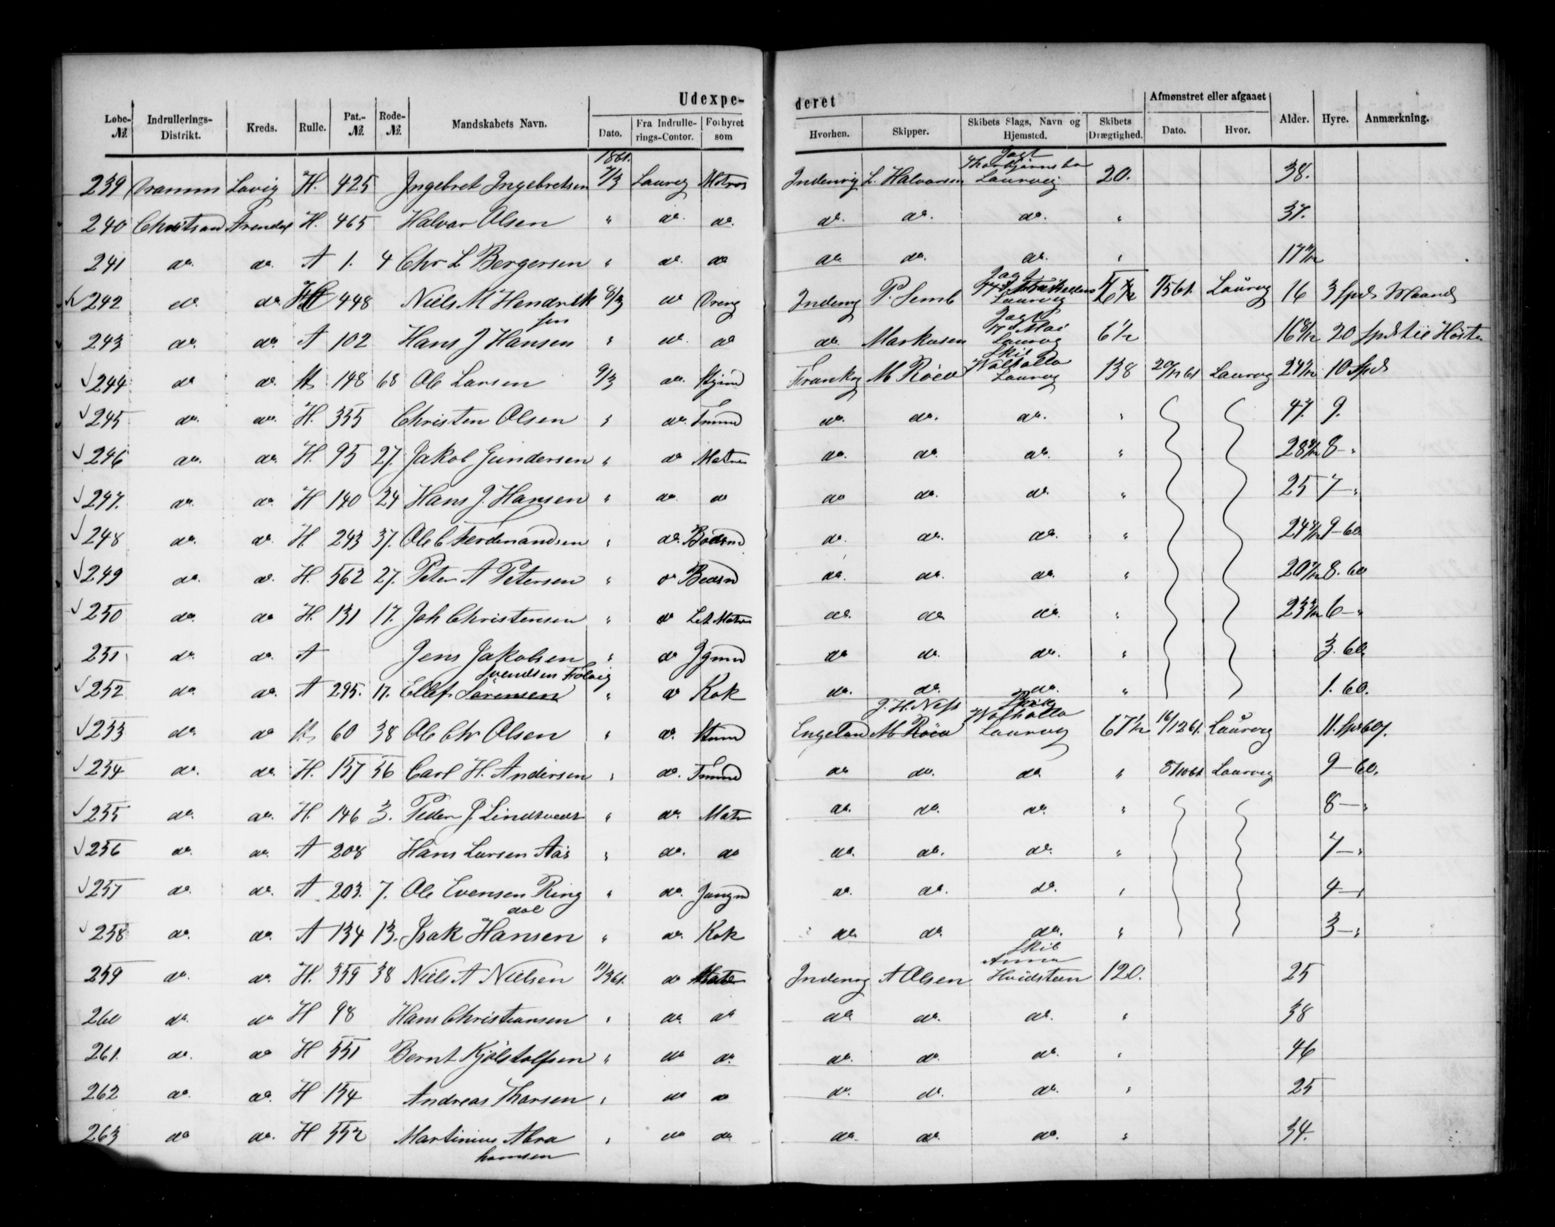 Udexpe-
deret
Løbe-№ Indrullerings-Distrikt. Kreds. Rulle. Pat.-№ Rode-№ Mandskabets Navn. Dato. Fra Indrullerings-Contor. Forhyret som Hvorhen. Skipper. Skibets Slags, Navn og Hjemsted. Skibets Drægtighed. Afmønstret eller afgaaet Dato. Hvor. Alder. Hyre. Anmærkning.
1861.
239 Dramm Lavig H. 425 Ingebret Ingebretsen 7/3 Laurvig Matros Indenrig L. Halvorsen Jagt Laurvig 20. 38.
240 Christsand Arendal H. 465 Halvar Olsen " do. do. do. do. do. " 37.
241 do. do. A 1. 4 Chr L Bergersen " do. do do do. do. " 17
242 do do 448 Niels M Hendriksen 8/3 do Dreng Indenrig P. Semb Jagt Laurvig Laurvig 16 3 spd Maaned
243 do. do. A 102 Hans J Hansen " do. do do. Markusen Jagt Laurvig 6½ 16 20 spd til Høste
244 do do. 148 68 Ole Larsen 9/3 do. Frankrig M Röed Skib Walhalla Laurvig 138 Laurvig 24 10 spd
245 do. do. H. 355 Christen Olsen " do do. do. do. " 47. 9.
246 do. do. H. 95 27. Jakob Gundersen " do Matros do. do. do. " 28 8 - "
247. do. do. H 140 24 Hans J. Hansen " do. do do do. do. " 25 7 - "
248 do. do. H 243 37. Ole C Ferdinandsen " do. do. do. do. " 24 9-60
249 do. do. H. 562 27. Peter A Petersen " do do. do. do. " 20 8. 60
250 do. do. H. 131 17. Joh Christensen " do Let Matros do. do. do. " 23 6 - "
251 do. do. A Jens Jakobsen " do do do. do. " 3. 60.
252 do. do. A 295. 17. Olaf Sörensen Svendsen " do Kok do. do. do. " 1. 60.
253 do. do 60 38 Ole Chr Olsen " do. England M Röed J. H. Skib Walhalla Laurvig 67½ 16/12 61. Laurvig 11. spd 60.
254 do. do. H. 157 36 Carl H. Andersen " do. do do do " 8/10 61 Laurvig 9 - 60.
255 do. do. H. 146 3. Peder J Lindsveds " do. Matr do. do. do. " 8 - "
256 do. do. A 208 Hans Larsen Aas " do. do do. do. do. " 7 - "
257 do. do. A 203. 7. Ole Evensen Ringdal " do. Jungmd do. do. do. " 4 - "
258 do. do. A 134 13. Isak Hansen " do. Kok do. do. do. " 3 - "
259 do. do. H. 359 38 Niels A Nielsen do Indenrig A Olsen Skib Anna Hvidsteen 120. 25
260 do. do H 98 Hans Christiansen " do. do do do. do. " 38
261. do. do H 551 Bernt Kjölstolfsen " do do. do. do. do. " 46
262 do. do. H 154 Andreas Thorsen " do do do. do. do. " 25
263 do do. H 552 Martinius Abrahamsen " do do. do. do. do. " 34.